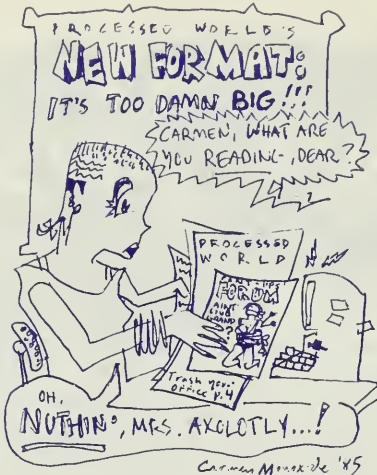 PROCESSED WORLD'S
NEW FORMAT:
IT'S TOO DAMN BIG!!!
CARMEN, WHAT ARE
YOU READING, DEAR?
PROCESSED
WORLD
FORUM
AIN'T
LIFE
GRAND
?
Trash your
office p.4
OH,
NUTHIN', MRS. AXOLOTLY...!
Carmen Monoxide '85